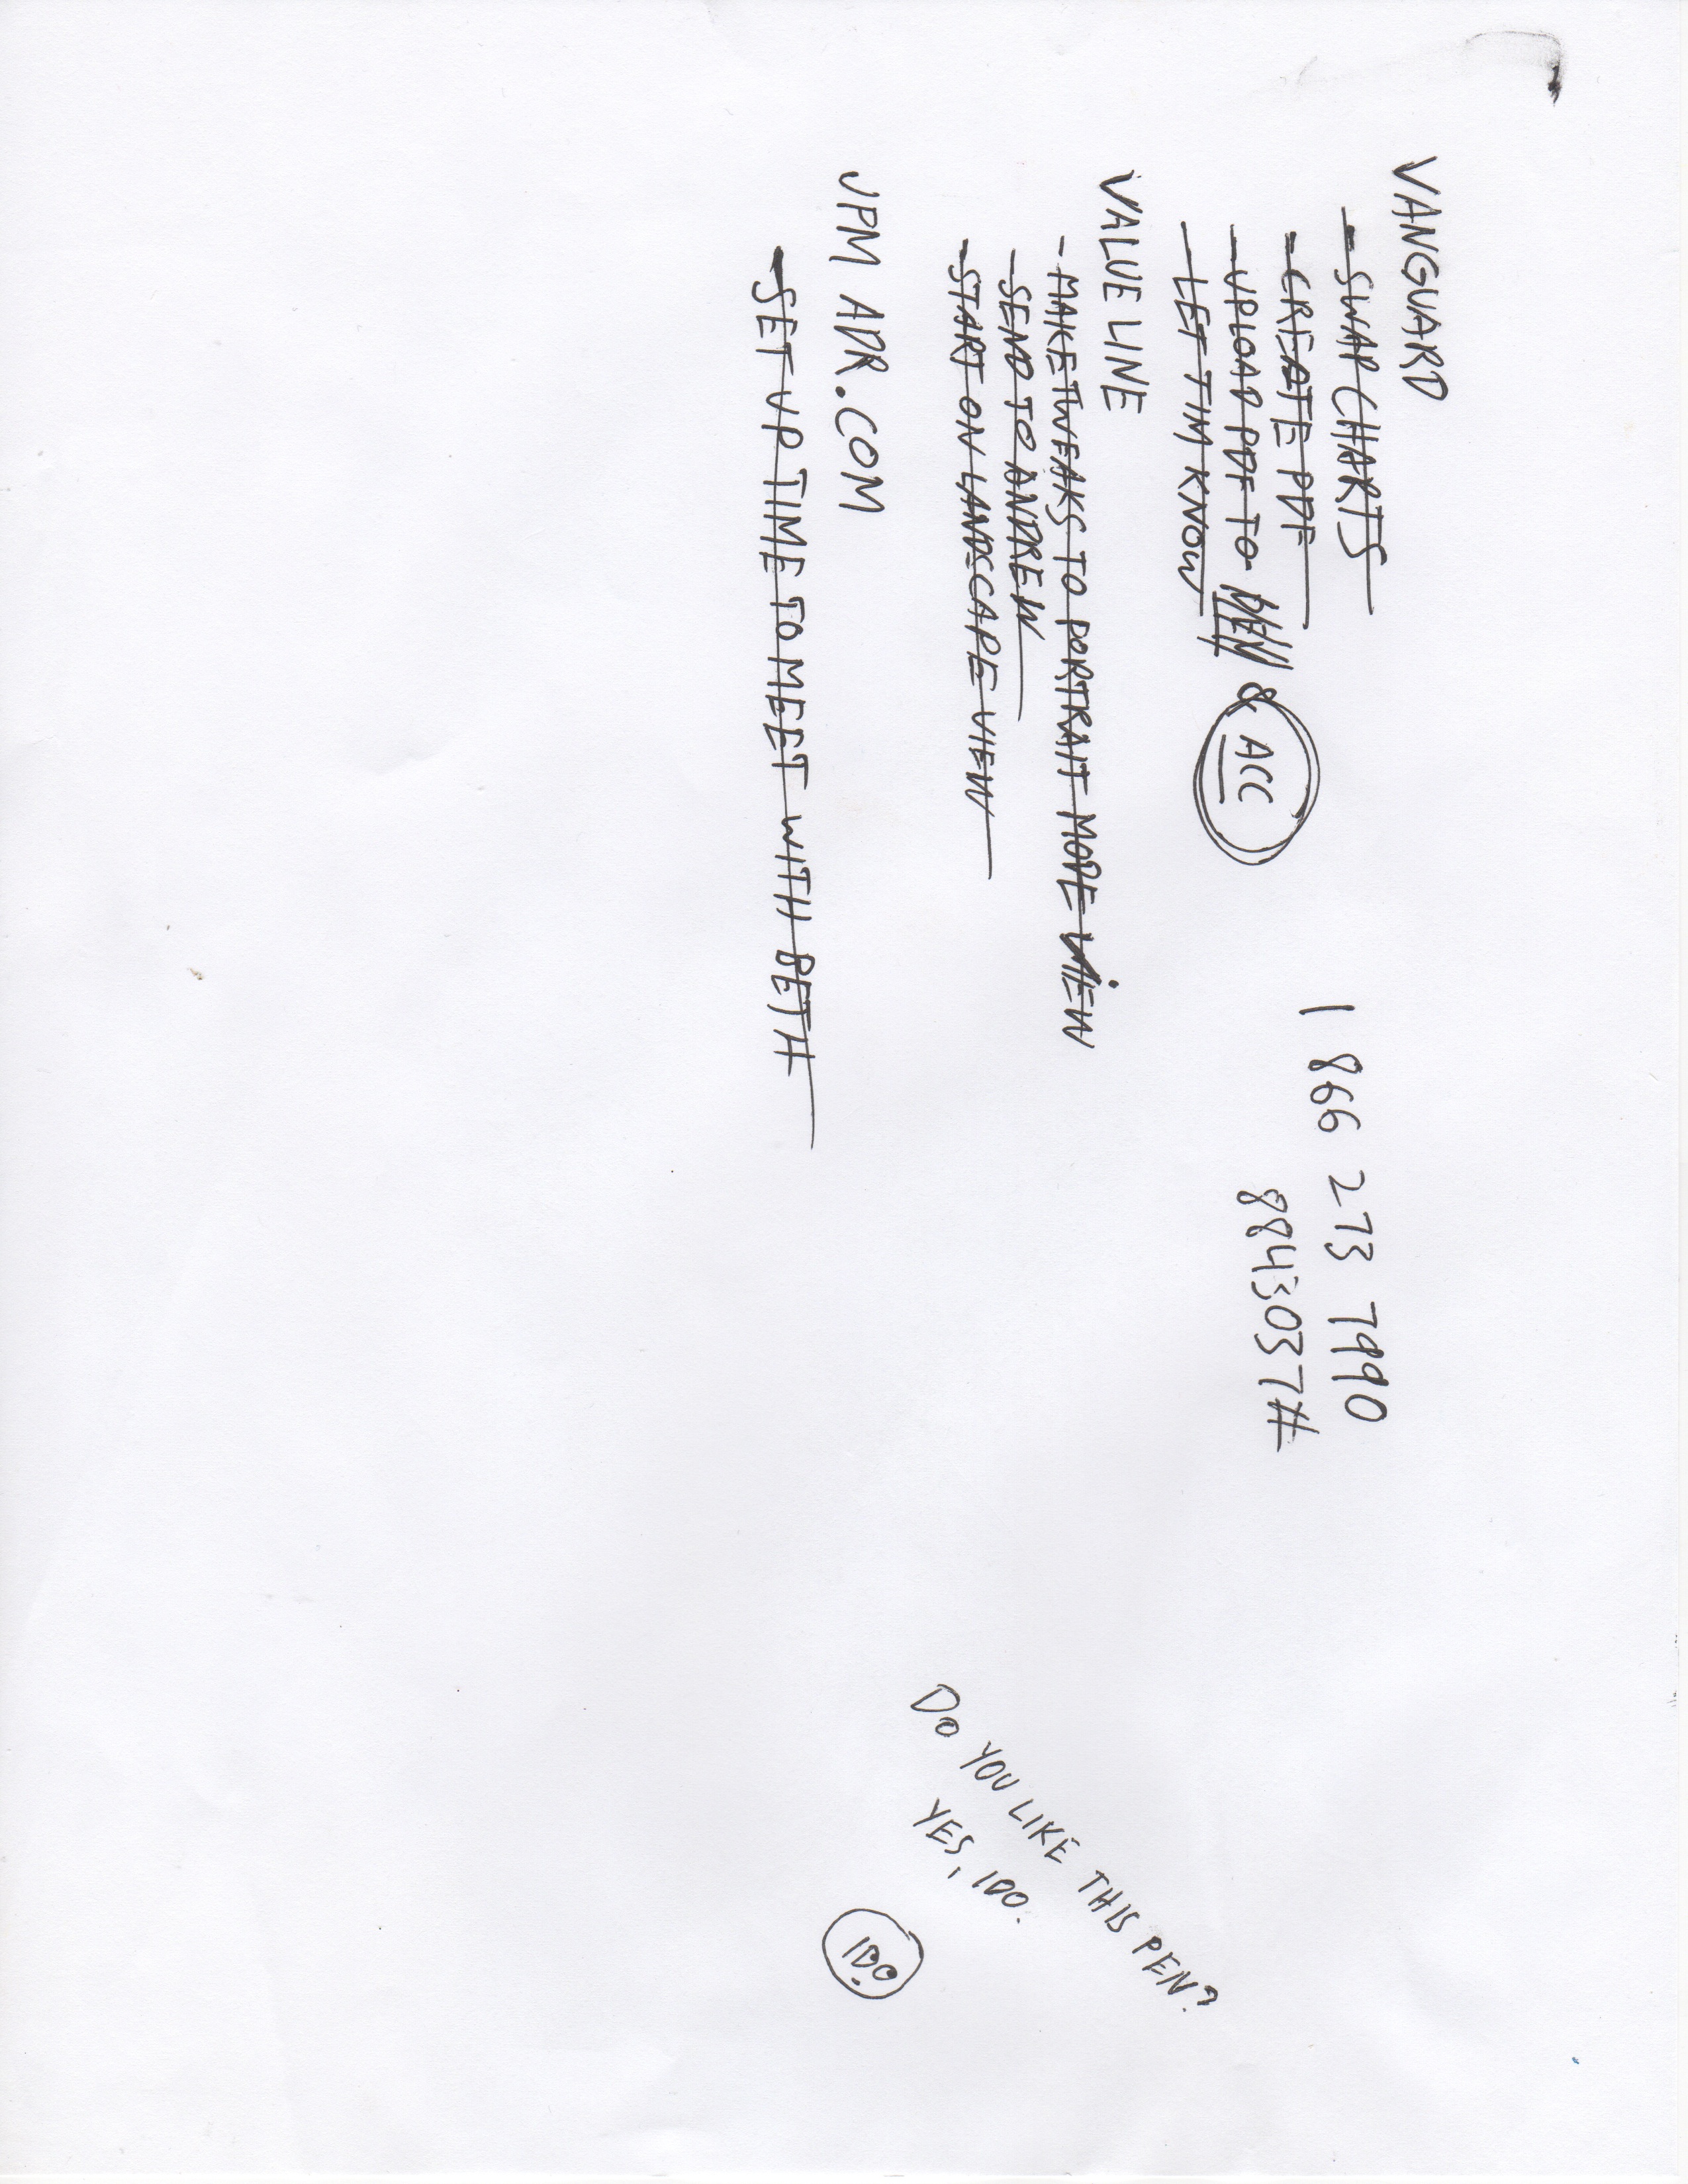 VANGUARD
- SWAP CHARTS
- CREATE PDF
- UPLOAD PDF TO & ACC
- LET TIM KNOW
VALUE LINE
- MAKE TWEAKS TO PORTRAIT MODE VIEW
- SEND TO ANDREW
- START ON LANDSCAPE VIEW
JPM ADR.COM
- SET UP TIME TO MEET WITH BETH
1 866 273 7990
8843037#
DO YOU LIKE THIS PEN?
YES, I DO.
I DO